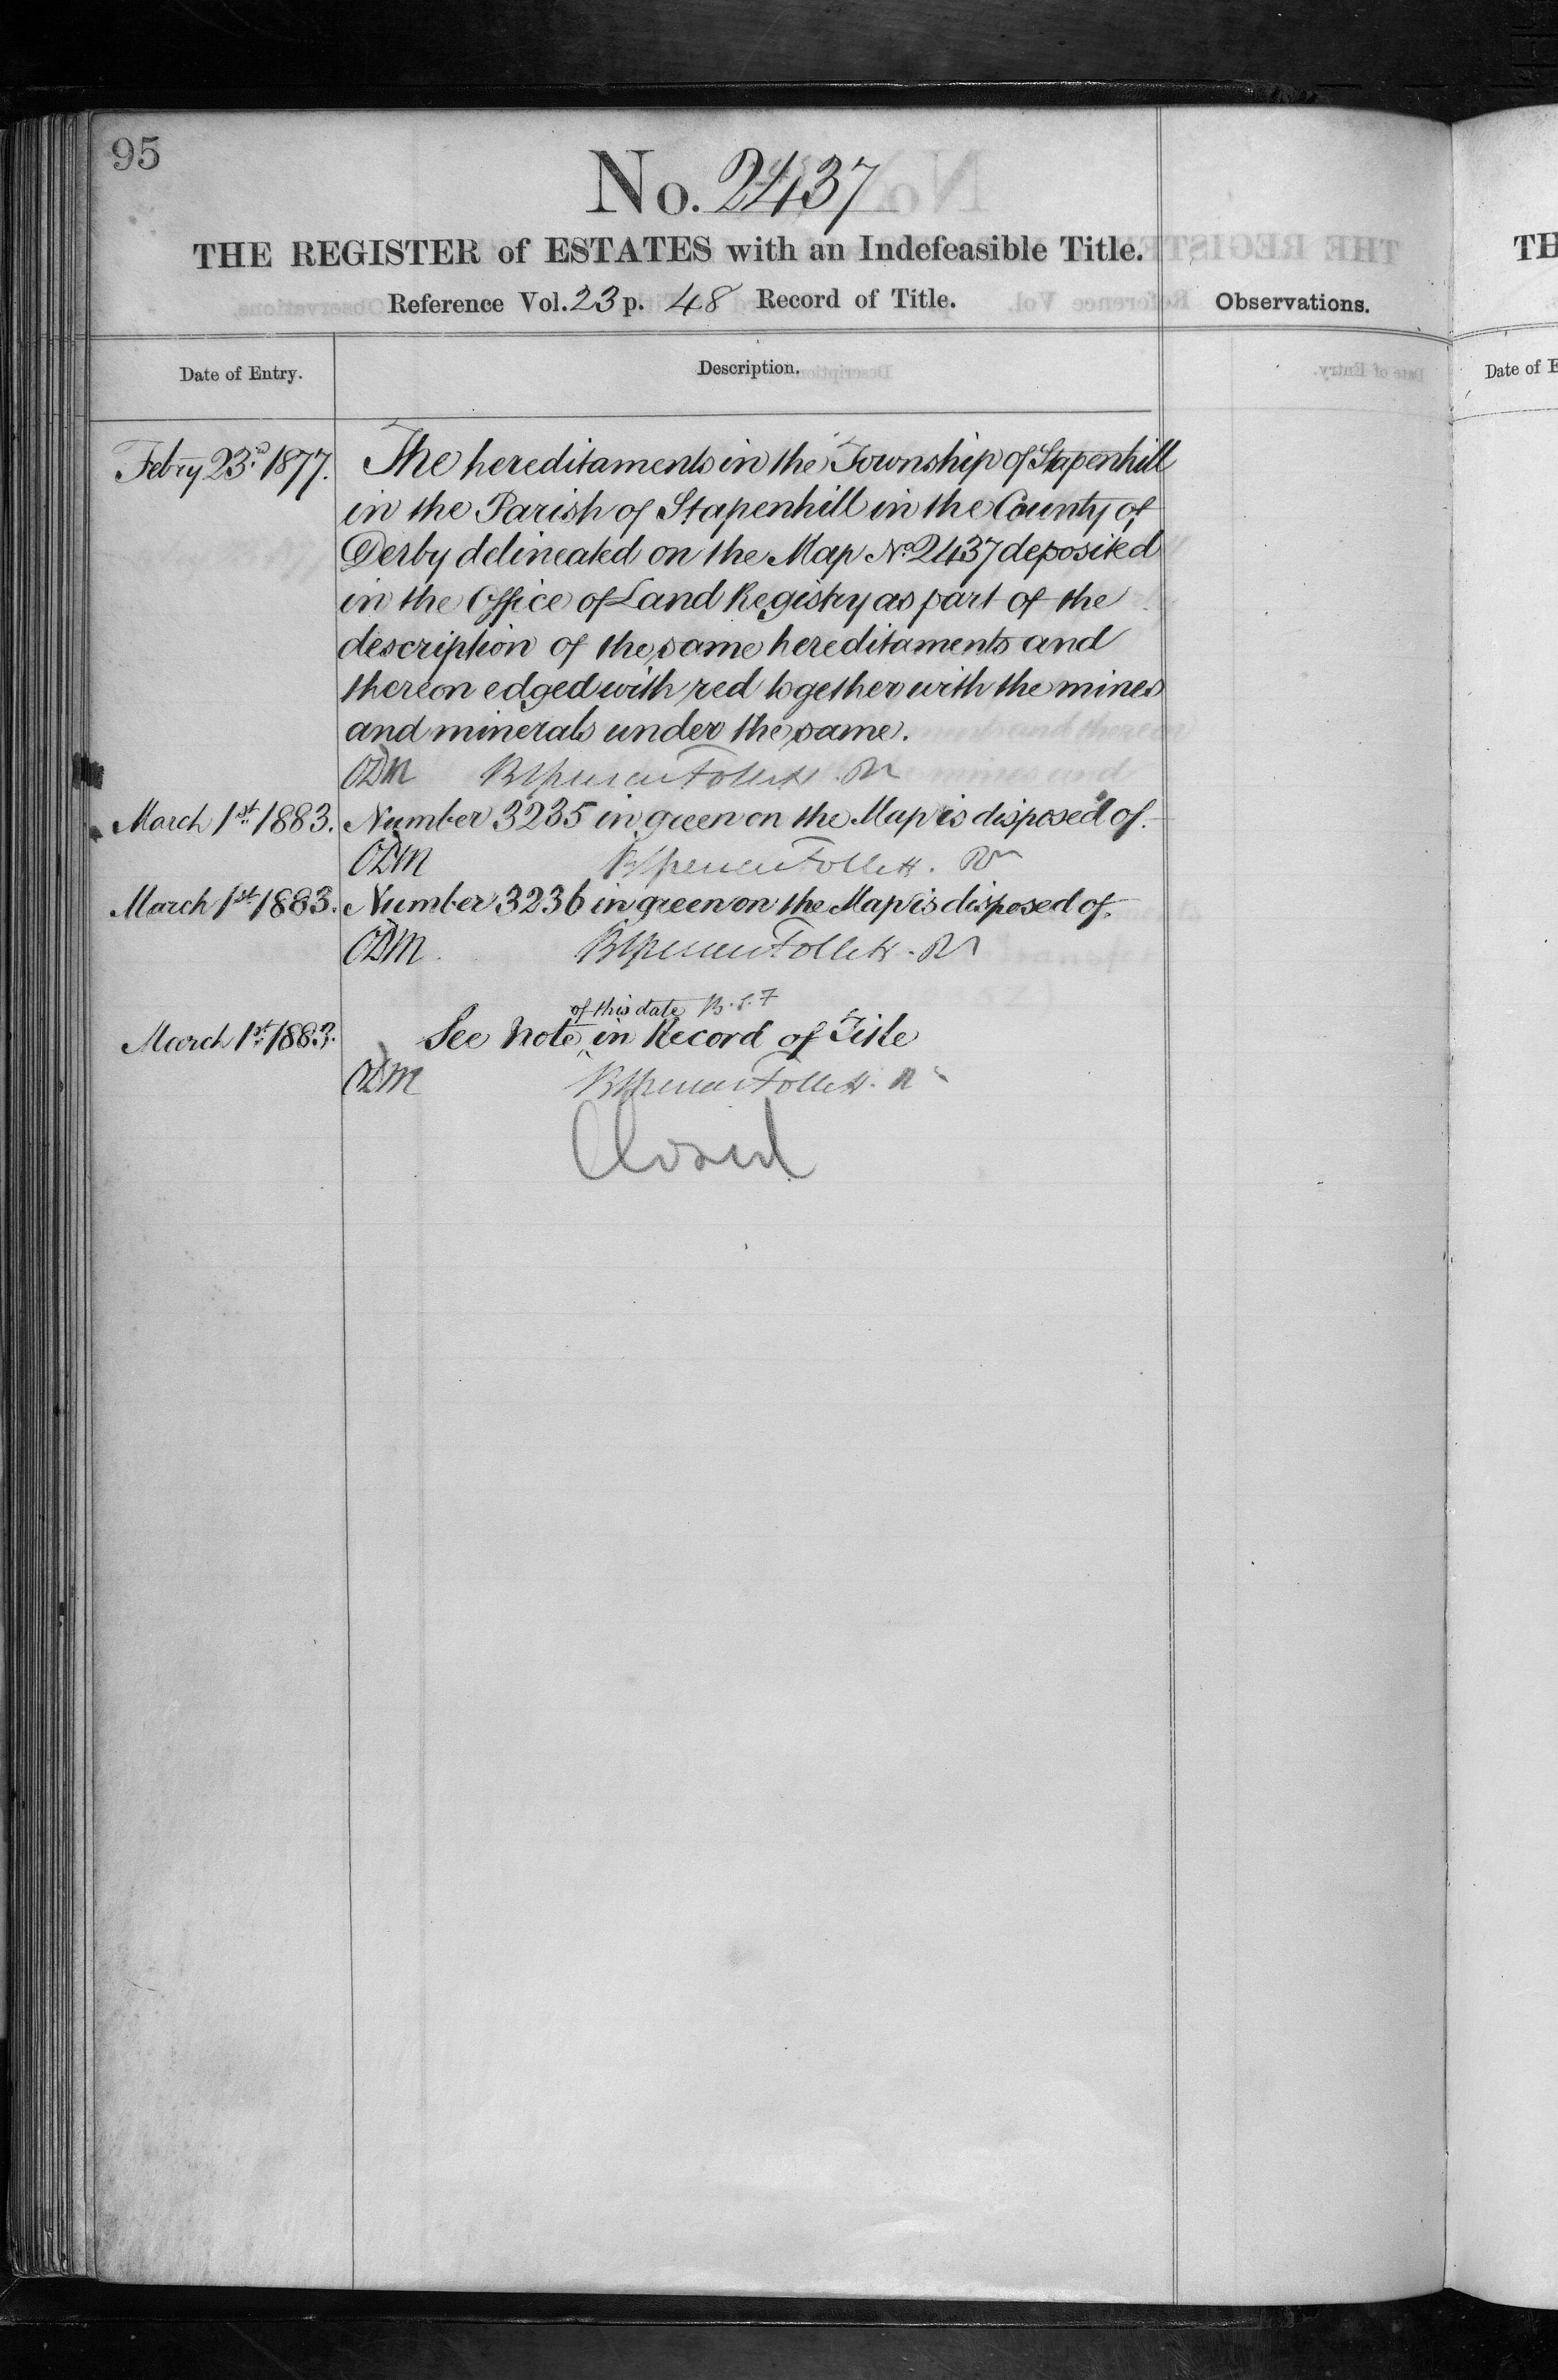 95
No. 2437
THE REGISTER of ESTATES with an Indefeasible Title.
Reference Vol. 23 p. 48 Record of Title.
Observations.
Date of Entry.
Description.
Febry 23rd 1877.
The hereditaments in the Township of Stapenhill
in the Parish of Stapenhill in the County of
Derby delineated on the Map No 2437 deposited
in the Office of Land Registry as part of the
description of the same hereditaments and
thereon edged with red together with the mines
and minerals under the same.
ODM BSpencer Follett. Rr
March 1st 1883. Number 3235 in green on the Map is disposed of.
ODM BSpencer Follett. Rr
March 1st 1883. Number 3236 in green on the Map is disposed of.
ODM BSpencer Follett. Rr
of this date B.S.F
March 1st 1883. See Note in Record of Title
ODM BSpencer Follett. Rr
Closed
TH
Date of E